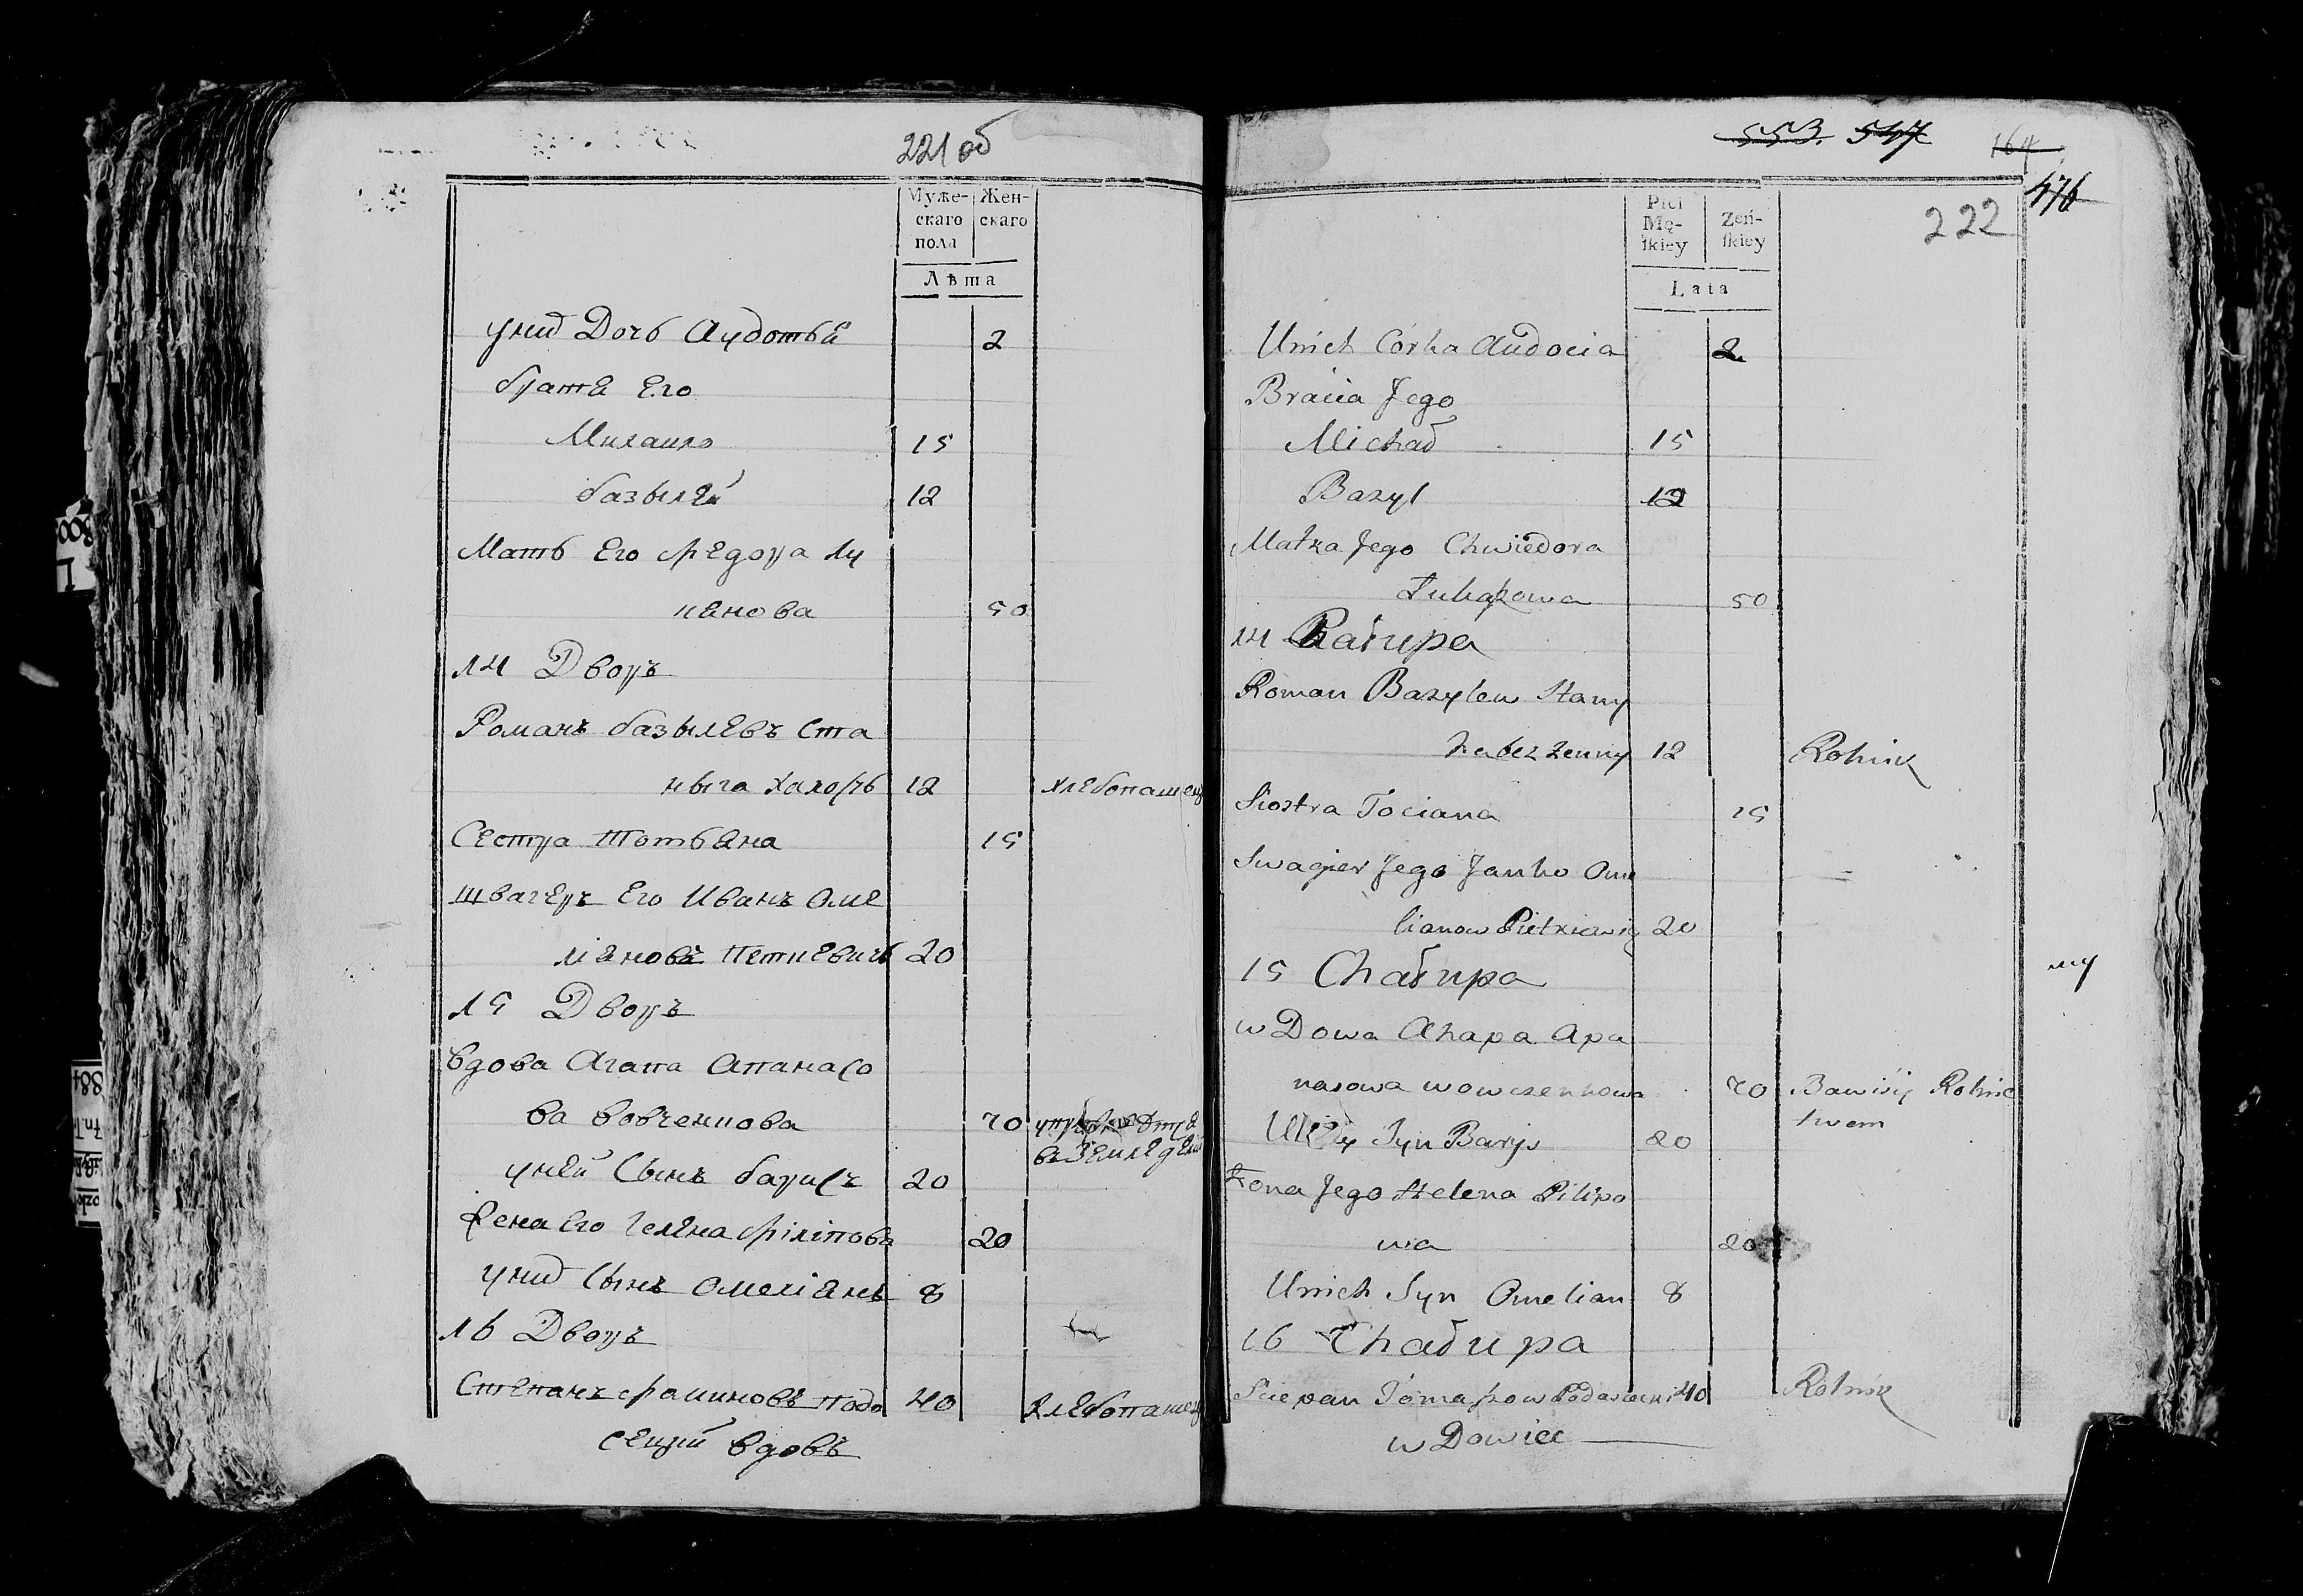 221 об
Муже-
скаго
пола
Жен-
скаго
Лѣта
унид Дочь Аудотьѣ
2
братѣ Его
Михаило
15
базылѣй
12
Мать Его Ѳедора Лу
кѣнова
50
14 Дворъ
Романъ базылѣвъ Ста
ныга Халость
12
хлебопашец
Сестра Тотьѣна
15
швагѣръ Его Иванъ Оме
ліѣновъ Петкевичъ
20
15 Дворъ
Вдова Агапа Апанасо
ва Вовченкова
70
в Земледѣлі
унѣй Сынъ барисъ
20
Жена Его Гелѣна Філіпова
20
унид Сынъ Омеліѣнъ
8
16 Дворъ
Степанъ Ѳоминовъ Подо
40
хлебопашец
сецкій вдовъ
553. 547
164
476
222
Płci
Mę-
ſkiey
Zeń-
ſkiey
Lata
Unich Córka Audocia
2
Bracia Jego
Michał
15
Bazyl
12
Matka Jego Chwiedora
Łukaszowa
50
14 Chałupa
Roman Bazylew Stany
ha bezżenny
12
Rolnik
Siostra Tociana
15
Swagier Jego Janko Ome
lianow Pietkiewicz
20
15 Chałupa
wDowa Ahapa Apa
nasowa wowczenkowa
70
Bawiący Rolnic
twem
Syn Barys
20
Żona Jego Helena Pilipo
wa
20
Unich Syn Omelian
8
16 Chałupa
Sciepan Tomaszow Podasiecki
40
Rolnik
wDowiec